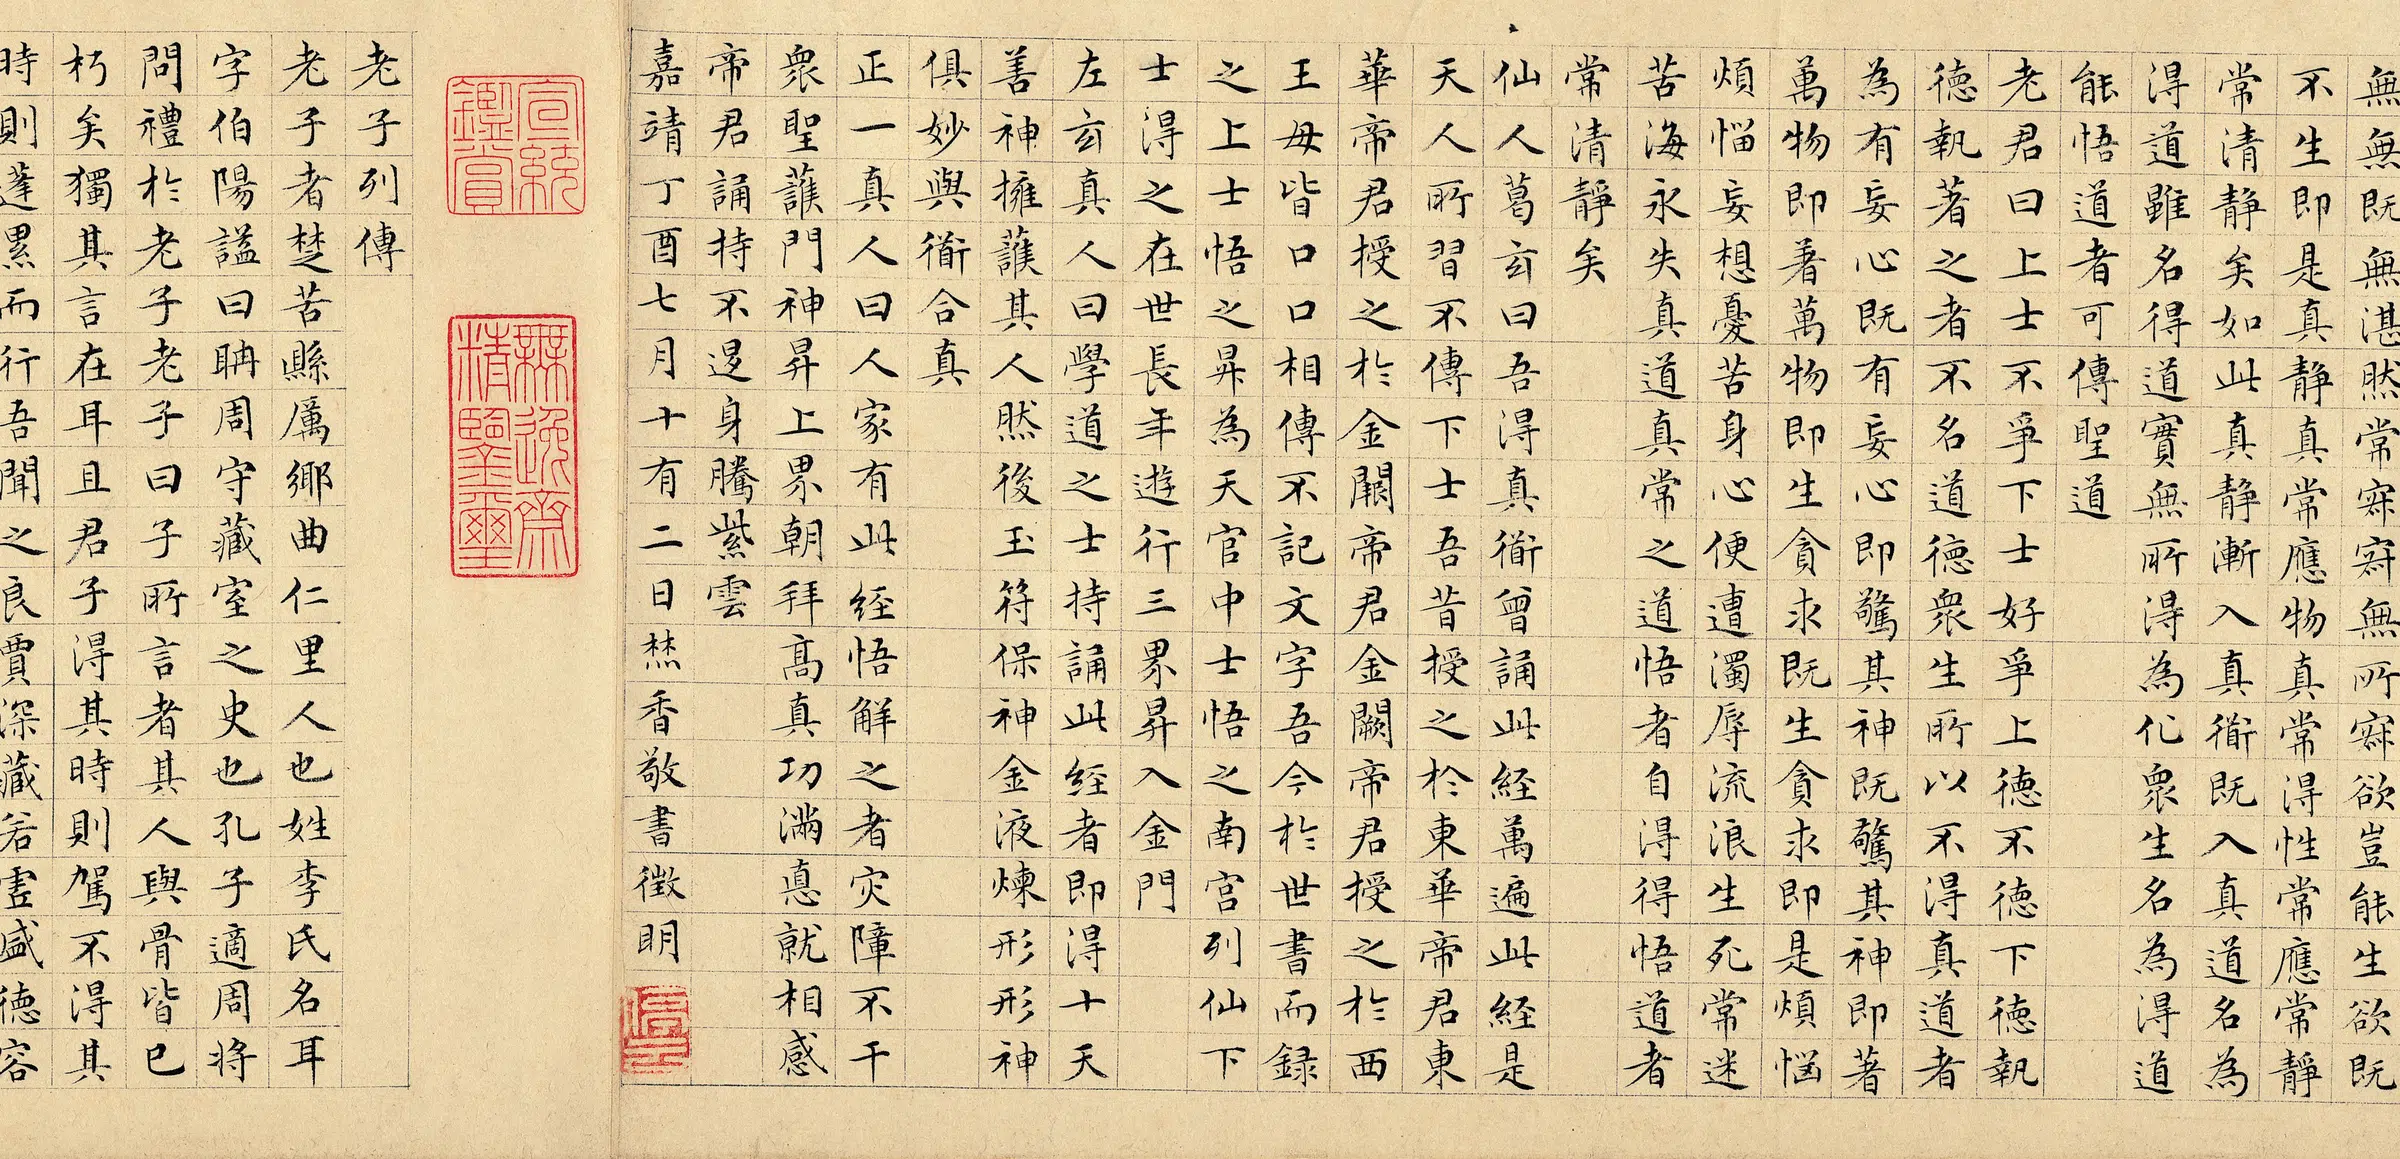 無無既無湛然常寂寂無所寂欲豈能生欲既
不生即是真静真常應物真常得性常應常靜
常清静矣如此真静漸入真衜既入真道名為
得道雖名得道實無所得為化衆生名為得道
能悟道者可傳聖道
老君曰上士不爭下士好爭上德不德下德執
德執著之者不名道德衆生所以不得真道者
為有妄心既有妄心即驚其神既驚其神即著
萬物即著萬物即生貪求既生貪求即是煩惱
煩惱妄想憂苦身心便遭濁辱流浪生死常迷
苦海永失真道真常之道悟者自得得悟道者
常清靜矣
仙人葛玄曰吾得真衜曾誦此経萬遍此経是
天人所習不傳下士吾昔授之於東華帝君東
華帝君授之於金闕帝君金闕帝君授之於西
王母皆口口相傳不記文字吾今於世書而録
之上士悟之昇為天官中士悟之南宮列仙下
士得之在世長年遊行三界昇入金門
左玄真人曰學道之士持誦此経者即得十天
善神擁護其人然後玉符保神金液煉形形神
俱妙與衜合真
正一真人曰人家有此経悟解之者灾障不干
衆聖護門神昇上界朝拜高真功滿悳就相感
帝君誦持不退身騰紫雲
嘉靖丁酉七月十有二日焚香敬書徵明
宣統鑑賞
無逸齋精鑒璽
老子列傳
老子者楚苦縣厲鄉曲仁里人也姓李氏名耳
字伯陽謚曰聃周守藏室之史也孔子適周將
問禮於老子老子曰子所言者其人與骨皆已
朽矣獨其言在耳且君子得其時則駕不得其
時則蓬累而行吾聞之良賈深藏若虛盛德容